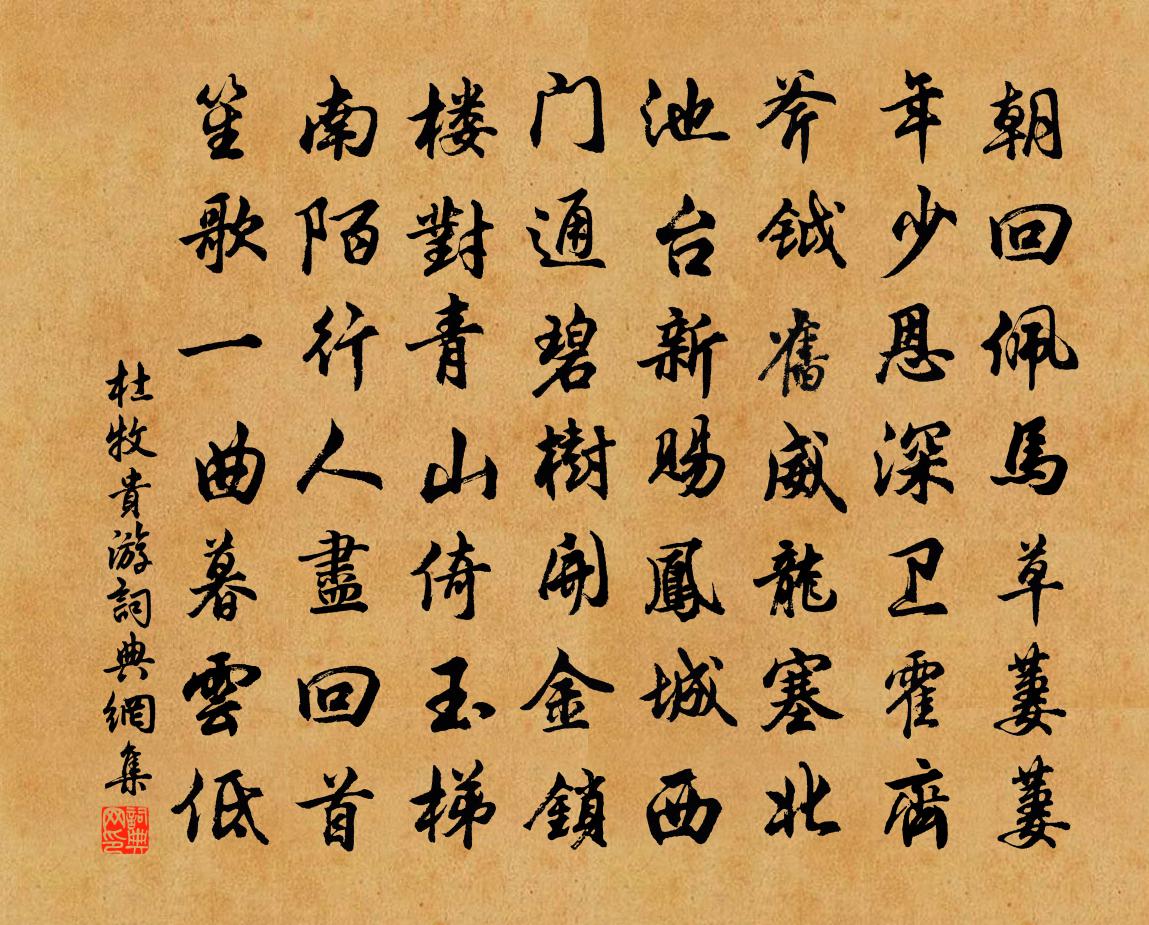 朝回佩馬草萋萋
年少恩深卫霍齊
斧鉞舊威龍塞北
池台新賜鳳城西
门通碧樹開金鎖
楼對青山倚玉梯
南陌行人盡回首
笙歌一曲暮雲低
杜牧貴游詞典網集
詞典网印